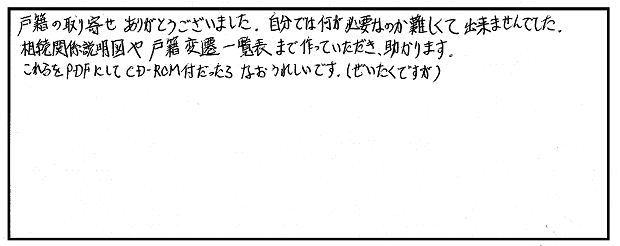 戸籍の取り寄せ ありがとうございました。自分では何が必要なのか難しくて出来ませんでした。
相続関係説明図や 戸籍変遷一覧表まで作っていただき、助かります。
これらをPDFにして CD-ROM付だったら なおうれしいです。(ぜいたくですが)